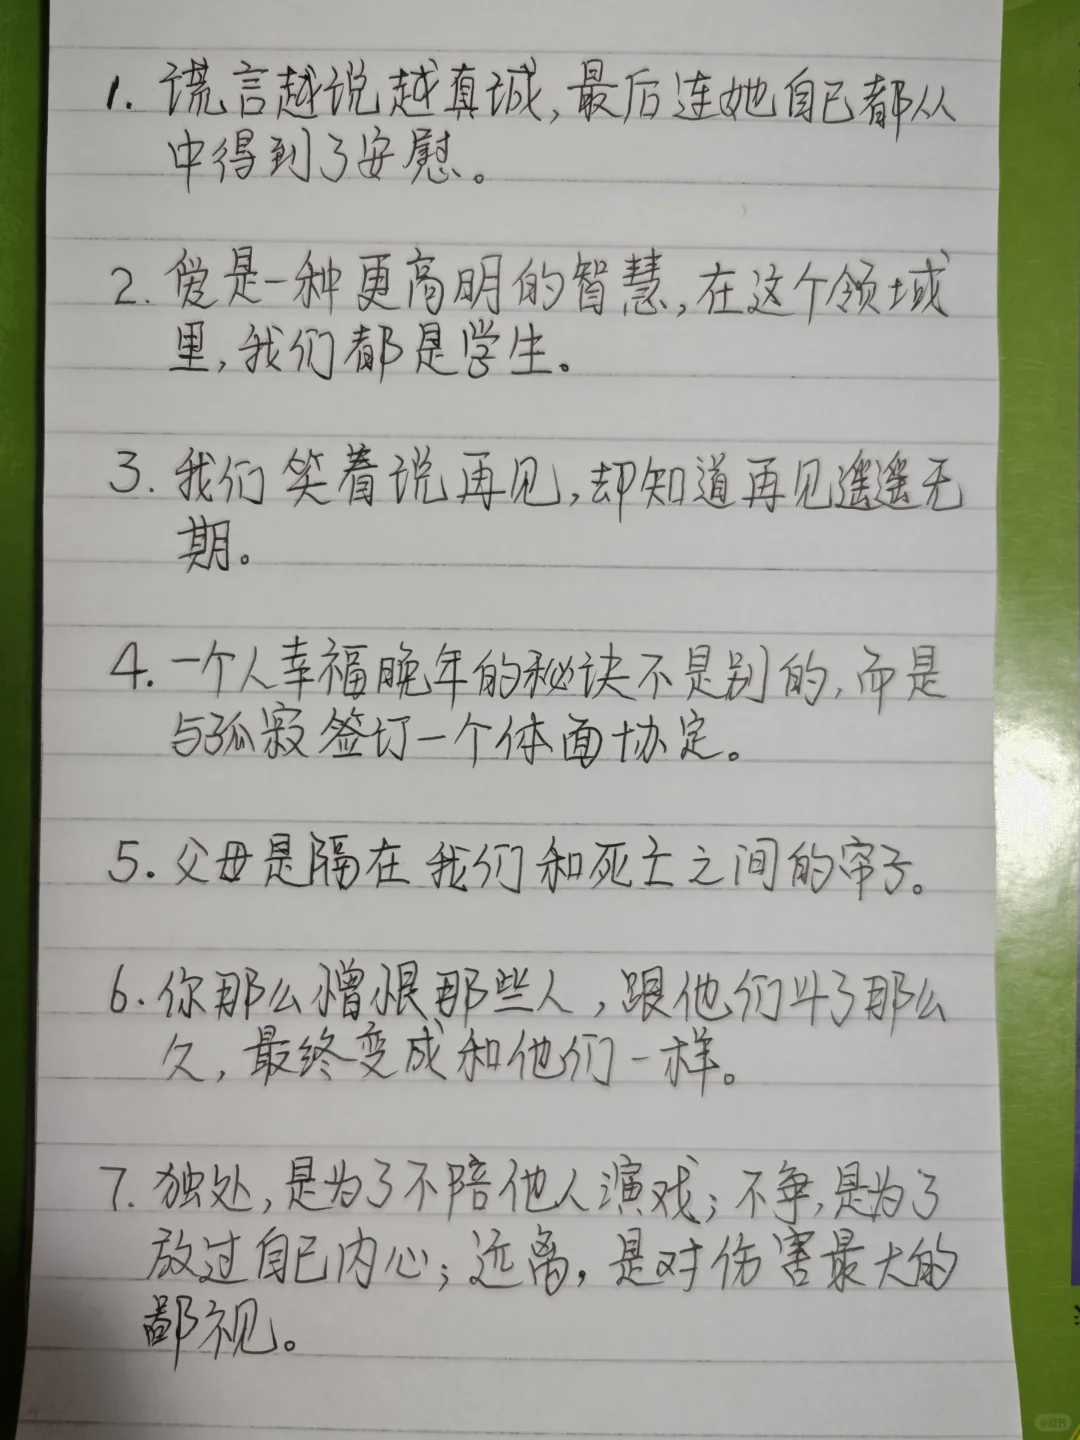 1. 谎言越说越真诚,最后连她自己都从
中得到了安慰。
2. 爱是一种更高明的智慧,在这个领域
里,我们都是学生。
3. 我们笑着说再见,却知道再见遥遥无
期。
4. 一个人幸福晚年的秘诀不是别的,而是
与孤寂签订一个体面协定。
5. 父母是隔在我们和死亡之间的帘子。
6. 你那么憎恨那些人,跟他们斗了那么
久,最终变成和他们一样。
7. 独处,是为了不陪他人演戏;不争,是为了
放过自己内心;远离,是对伤害最大的
鄙视。
小红书